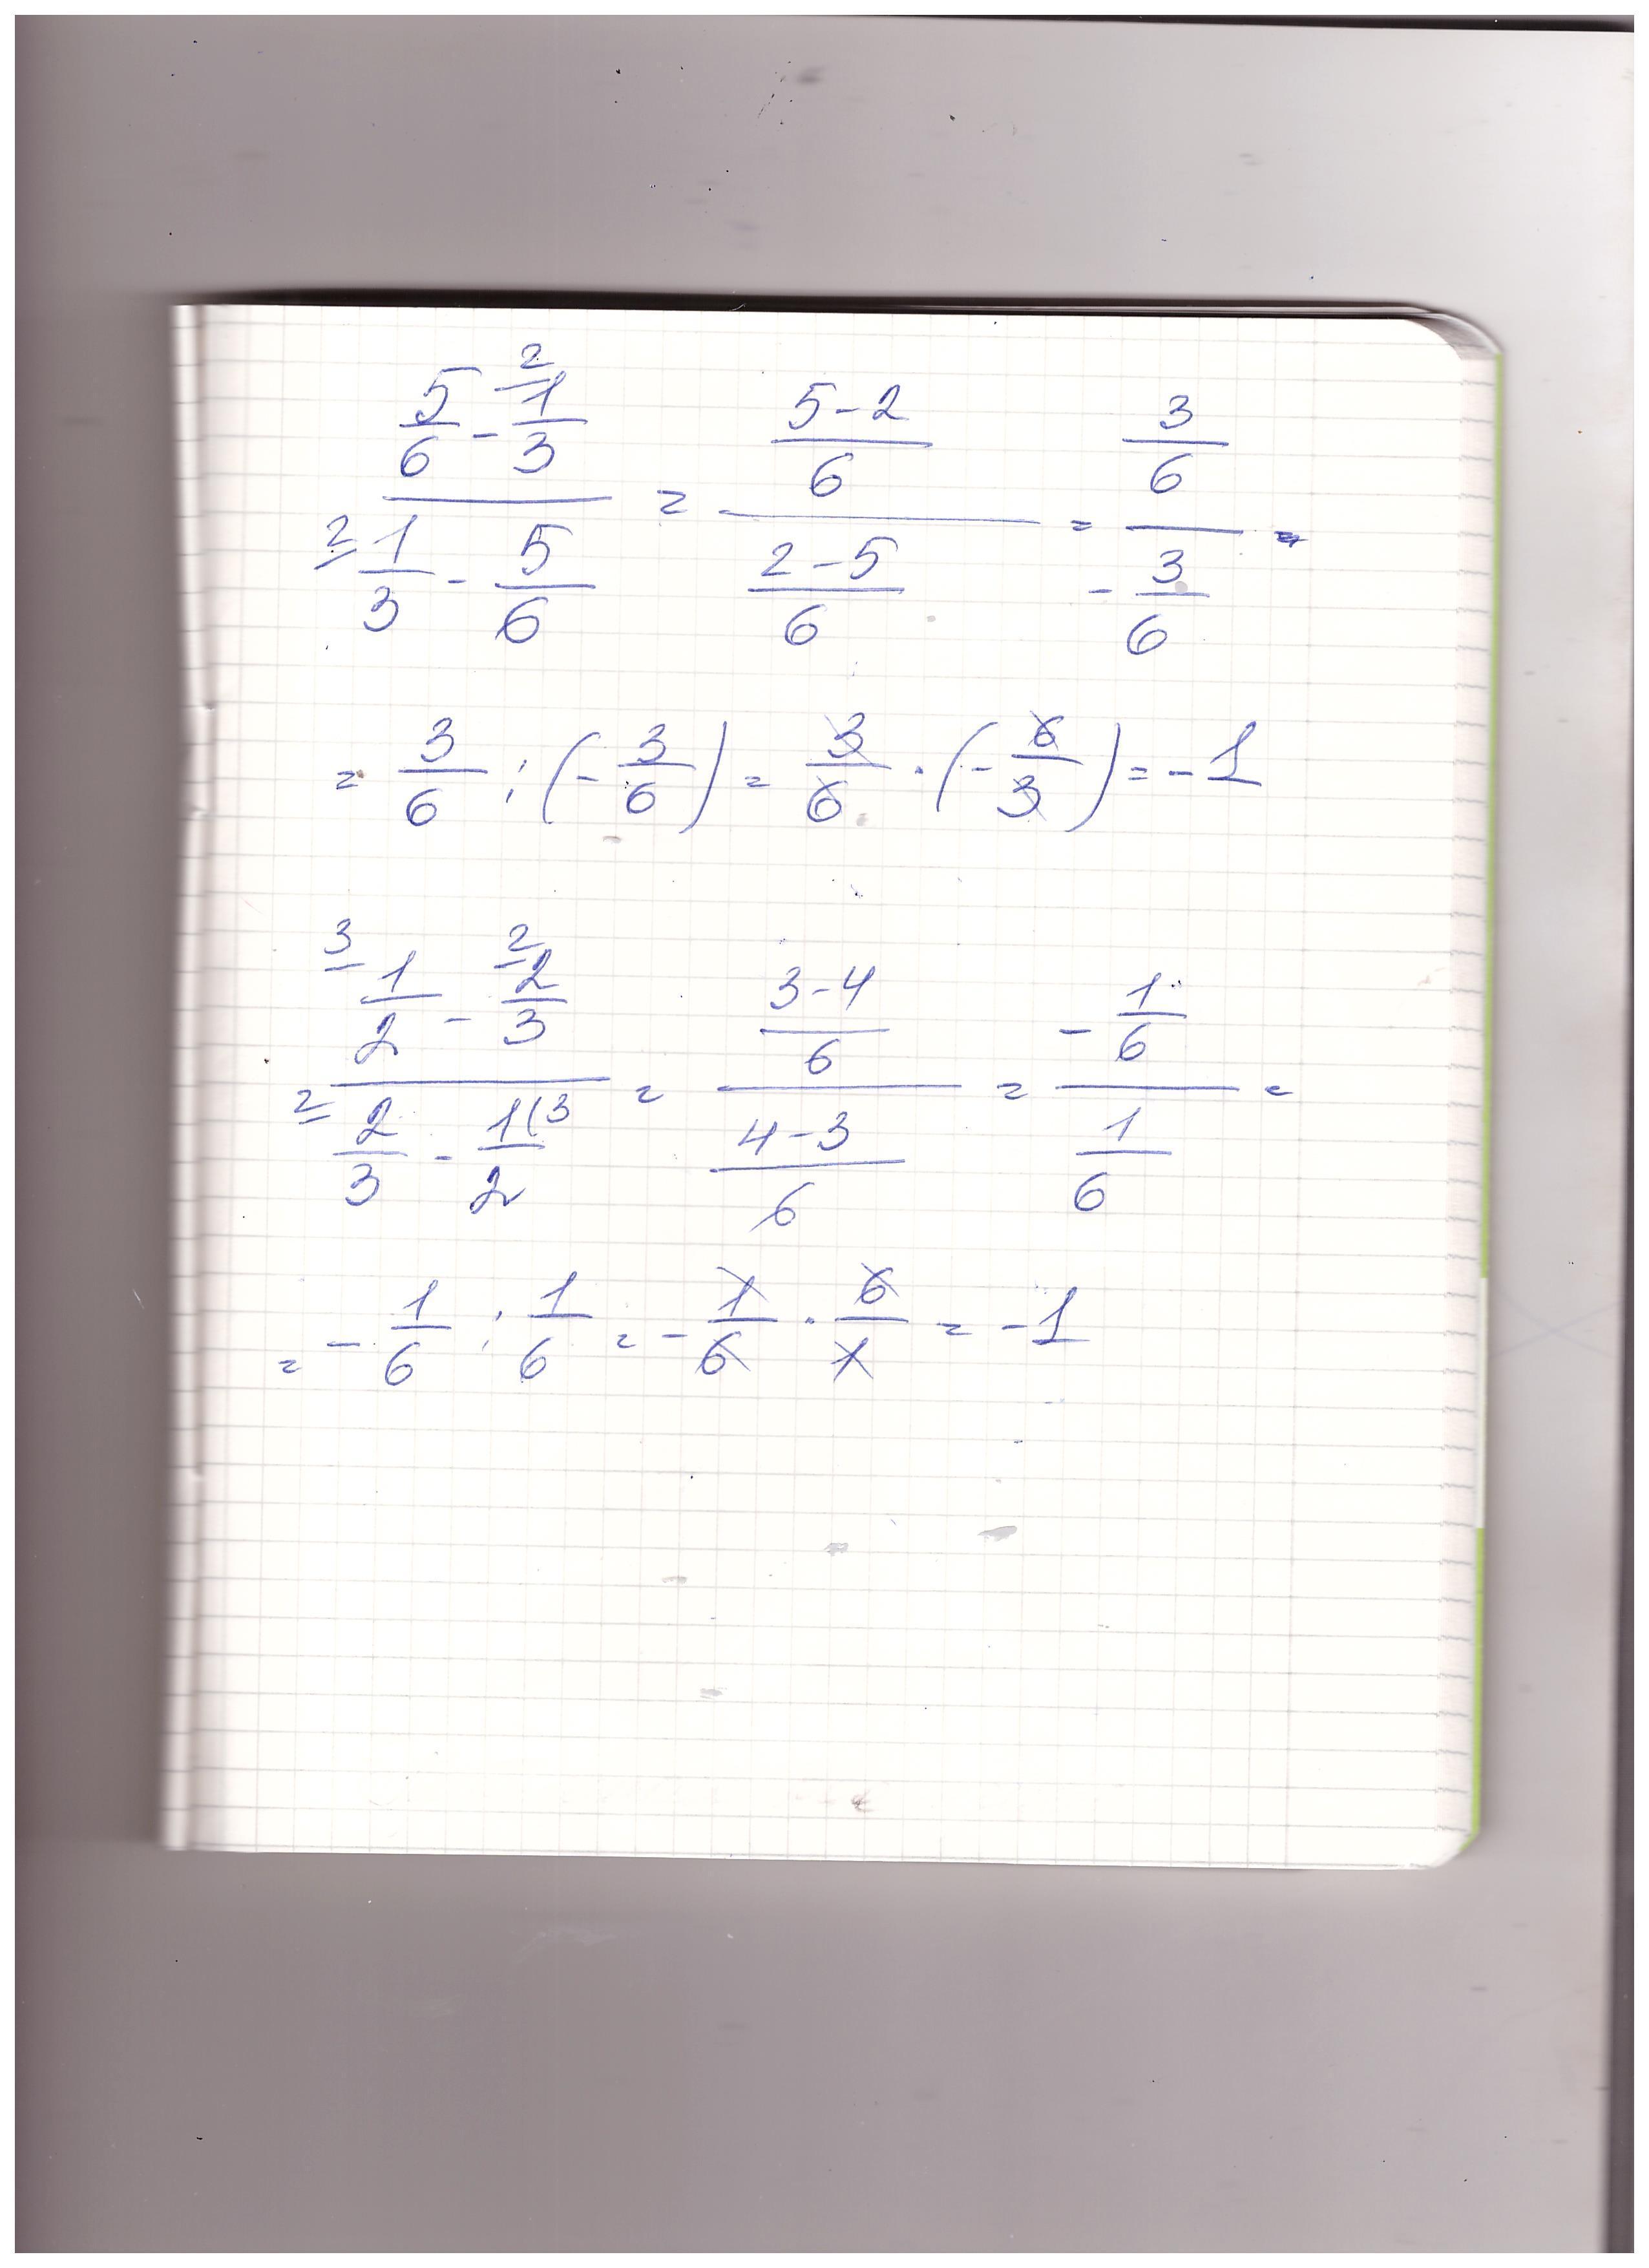 \frac{\frac{5}{6} - \frac{1}{3}^{2}}{^{2}\frac{1}{3} - \frac{5}{6}} = \frac{\frac{5-2}{6}}{\frac{2-5}{6}} = \frac{\frac{3}{6}}{-\frac{3}{6}} =
= \frac{3}{6} : (-\frac{3}{6}) = \frac{3}{6} \cdot (-\frac{6}{3}) = -1
\frac{^{3}\frac{1}{2} - ^{2}\frac{2}{3}}{^{2}\frac{2}{3} - \frac{1(3}{2}} = \frac{\frac{3-4}{6}}{\frac{4-3}{6}} = \frac{-\frac{1}{6}}{\frac{1}{6}} =
= -\frac{1}{6} : \frac{1}{6} = -\frac{1}{6} \cdot \frac{6}{1} = -1